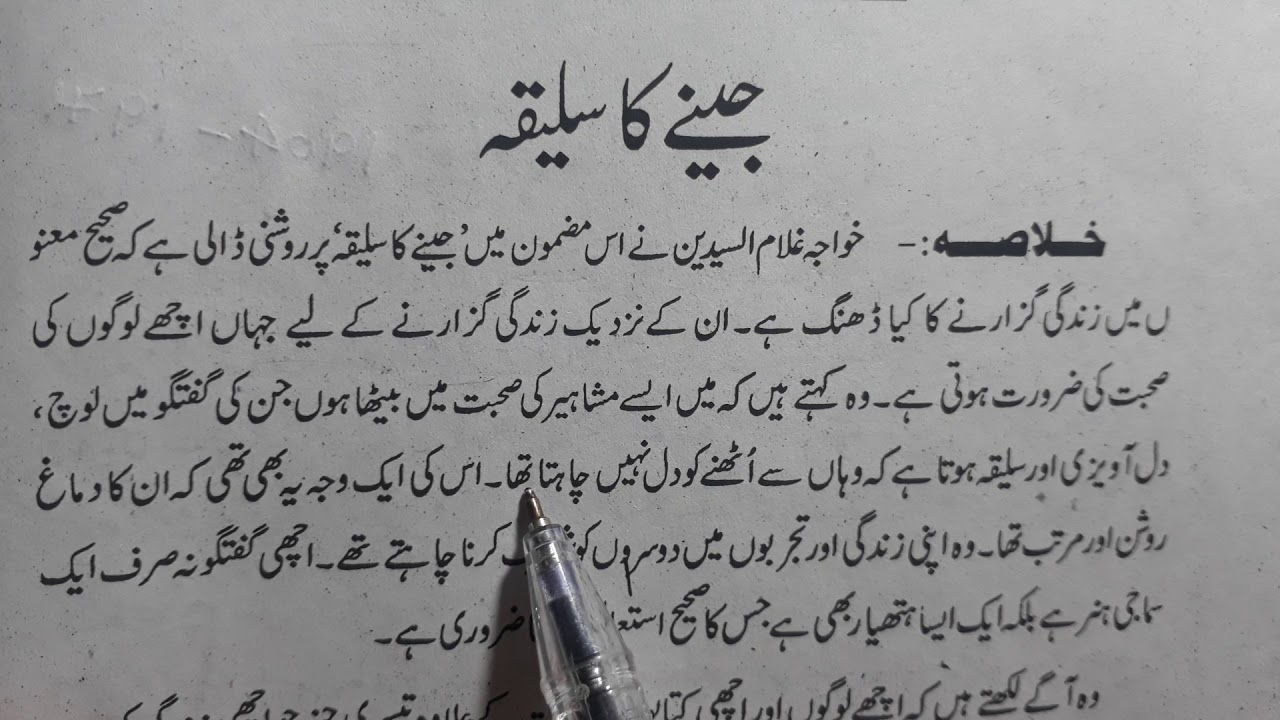 جینے کا سلیقہ
خلاصہ :- خواجہ غلام السیدین نے اس مضمون میں 'جینے کا سلیقہ' پر روشنی ڈالی ہے کہ صحیح معنو
ں میں زندگی گزارنے کا کیا ڈھنگ ہے۔ ان کے نزدیک زندگی گزارنے کے لیے جہاں اچھے لوگوں کی
صحبت کی ضرورت ہوتی ہے۔ وہ کہتے ہیں کہ میں ایسے مشاہیر کی صحبت میں بیٹھا ہوں جن کی گفتگو میں لوچ،
دل آویزی اور سلیقہ ہوتا ہے کہ وہاں سے اُٹھنے کو دل نہیں چاہتا تھا۔ اس کی ایک وجہ یہ بھی تھی کہ ان کا دماغ
روشن اور مرتب تھا۔ وہ اپنی زندگی اور تجربوں میں دوسروں کو کرنا چاہتے تھے۔ اچھی گفتگو نہ صرف ایک
سماجی ہنر ہے بلکہ ایک ایسا ہتھیار بھی ہے جس کا صحیح ضروری ہے۔
وہ آگے لکھتے ہیں کہ اچھے لوگوں اور اچھی